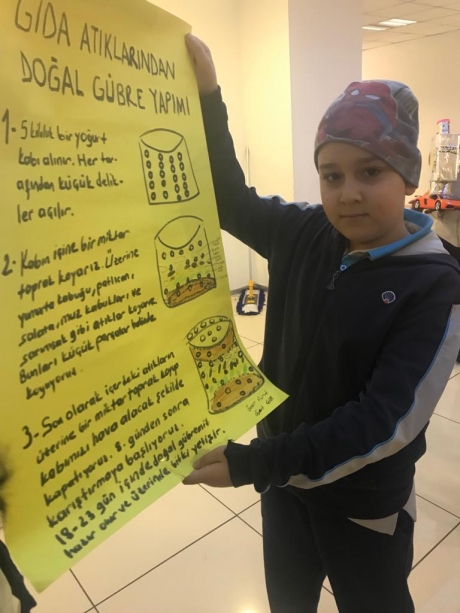 GIDA ATIKLARINDAN
DOĞAL GÜBRE YAPIMI
1- 5 kiloluk bir yoğurt
kabı alınır. Her tar-
afından küçük delik-
ler açılır.
2- Kabın içine bir miktar
toprak koyarız. Üzerine
yumurta kabuğu, patlıcan,
salata, muz kabukları, ve
sarımsak gibi atıklar koyarız.
Bunları küçük parçalar halinde
koyuyoruz.
3- Son olarak içerideki atıkların
üzerine bir miktar toprak koyup
kabımızı hava alacak şekilde
kapatıyoruz. 8. günden sonra
karıştırmaya başlıyoruz.
18-23 gün içinde doğal gübreniz
hazır olur ve üzerinde bitki yetiştir.